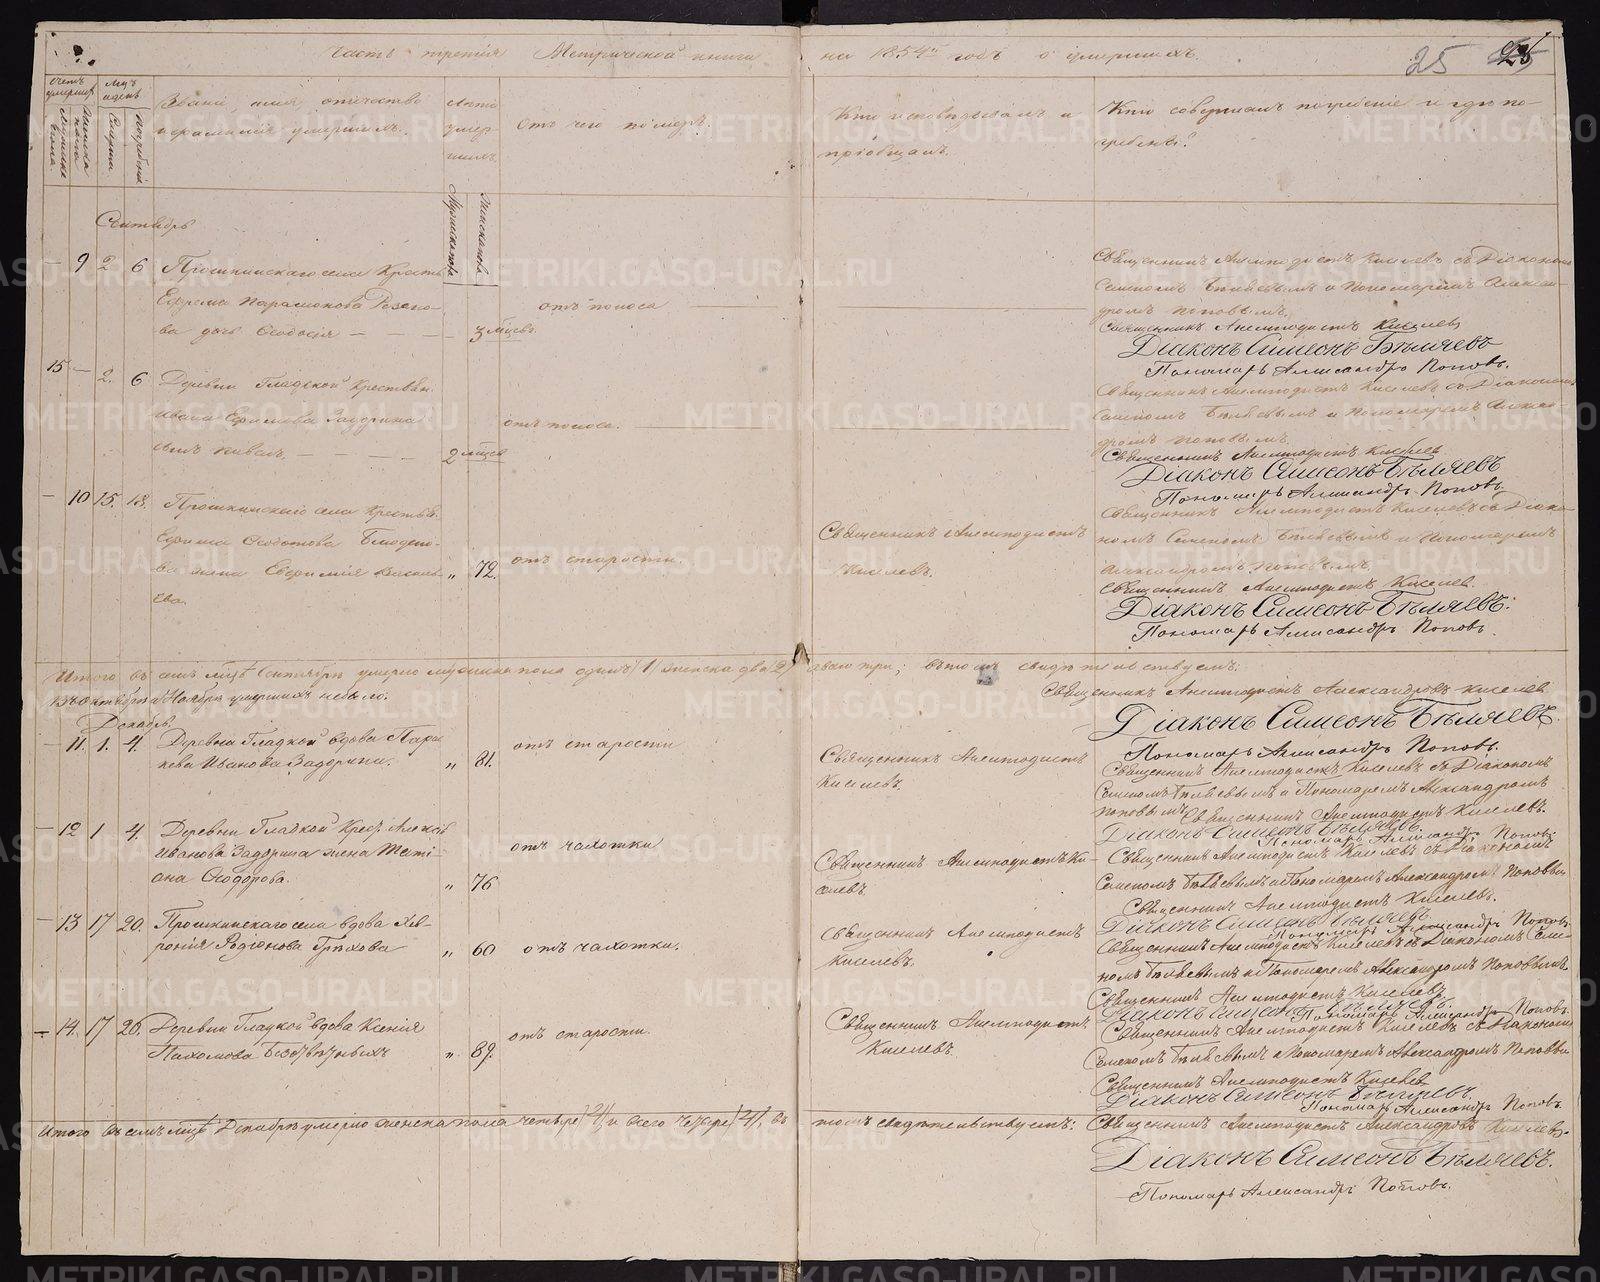 Часть третiя Метрической книги на 1854й годъ о умершихъ.
25
Счетъ умершихъ
Мужска пола.
Женска пола
Мцъ и день
Смерти
Погребенiя
Званiе, имя, отчество
и фамилiя умершихъ.
Лета
умер-
шихъ.
Мужскаго
Женскаго
Отъ чего померъ.
Кто исповедывалъ и
прiобщалъ.
Кто совершалъ погребенiе и где по-
гребены?
Сентябрь
— 9 2 6 Прошкинскаго села Крестьян.
Ефрема Парамонова
ва дочь Ѳеодосiя — — — 3 мцевъ.
отъ поноса
Священникъ Анемподистъ Киселевъ съ Дiакономъ
Симеономъ Бѣляевымъ и Пономаремъ Алексан-
дромъ Поповымъ.
Священникъ Анемподистъ Киселевъ
Дiаконъ Симеонъ Бѣляевъ
Пономарь Александръ Поповъ.
15 — 2. 6 Деревни Гладкой Крестьян.
Ивана Ефимова Задорина
сынъ Иванъ. — — — 2 мцевъ
отъ поноса.
Священникъ Анемподистъ Киселевъ съ Дiакономъ
Симеономъ Бѣляевымъ и Пономаремъ Алексан-
дромъ Поповымъ.
Священникъ Анемподистъ Киселевъ
Дiаконъ Симеонъ Бѣляевъ
Пономарь Александръ Поповъ.
— 10 15. 18. Прошкинскаго села Крестьян.
Ефима Ѳедотова
ва жена Евфимiя Василь-
ева. „ 72.
отъ старости.
Священникъ Анемподистъ
Киселевъ.
Священникъ Анемподистъ Киселевъ съ Дiако-
номъ Симеономъ Бѣляевымъ и Пономаремъ
Александромъ Поповымъ.
Священникъ Анемподистъ Киселевъ.
Дiаконъ Симеонъ Бѣляевъ.
Пономарь Александръ Поповъ.
Итого въ семъ мцѣ Сентябрѣ умерло мужеска пола одинъ /1/ женска два /2/ всего три; въ томъ свидѣтельствуемъ:
въ Октябрѣ и Ноябрѣ умершихъ небыло.
Священникъ Анемподистъ Александровъ Киселевъ
Дiаконъ Симеонъ Бѣляевъ.
Пономарь Александръ Поповъ.
Декабрь.
— 11. 1. 4. Деревни Гладкой вдова Парас-
кева Иванова Задорина. „ 81.
отъ старости
Священникъ Анемподистъ
Киселевъ.
Священникъ Анемподистъ Киселевъ съ Дiакономъ
Симеономъ Бѣляевымъ и Пономаремъ Александромъ
Поповымъ. Священникъ Анемподистъ Киселевъ.
Дiаконъ Симеонъ Бѣляевъ.
Пономарь Александръ Поповъ.
— 12 1 4. Деревни Гладкой Крест. Алексѣя
Иванова Задорина жена Татi-
ана Ѳеодорова. „ 76
отъ чахотки
Священникъ Анемподистъ Ки-
селевъ.
Священникъ Анемподистъ Киселевъ съ Дiакономъ
Симеономъ Бѣляевымъ и Пономаремъ Александромъ Поповым
Священникъ Анемподистъ Киселевъ.
Дiаконъ Симеонъ Бѣляевъ.
Пономарь Александръ Поповъ.
— 13 17 20. Прошкинскаго села вдова Хев-
ронiя Родiонова Грѣхова „ 60
отъ чахотки.
Священникъ Анемподистъ
Киселевъ.
Священникъ Анемподистъ Киселевъ съ Дiакономъ Симе-
ономъ Бѣляевымъ и Пономаремъ Александромъ Поповымъ.
Священникъ Анемподистъ Киселевъ.
Дiаконъ Симеонъ Бѣляевъ.
Пономарь Александръ Поповъ.
— 14. 17 20. Деревни Гладкой вдова Ксенiя
Пахомова „ 89.
отъ старости.
Священникъ Анемподистъ
Киселевъ.
Священникъ Анемподистъ Киселевъ съ Дiакономъ
Симеономъ Бѣляевымъ и Пономаремъ Александромъ Поповым
Священникъ Анемподистъ Киселевъ
Дiаконъ Симеонъ Бѣляевъ.
Пономарь Александръ Поповъ.
Итого въ семъ мцѣ Декабрѣ умерло женска пола четыре /4/, и всего четыре /4/, въ томъ свидѣтельствуемъ: Священникъ Анемподистъ Александровъ Киселевъ.
Дiаконъ Симеонъ Бѣляевъ.
Пономарь Александръ Поповъ.
METRIKI.GASO-URAL.RU